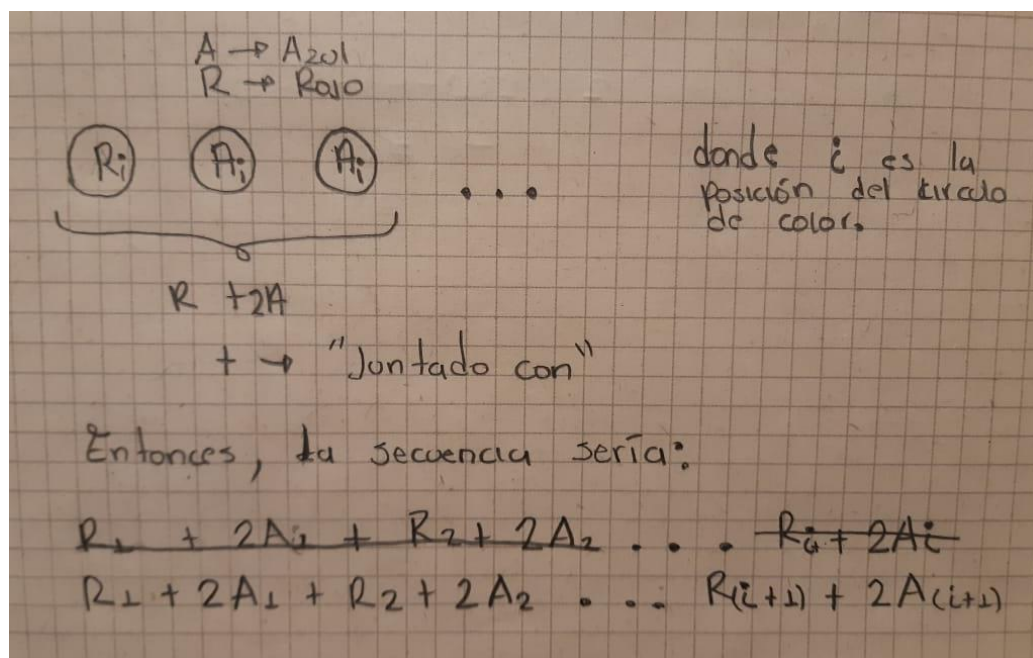 A → Azul
R → Rojo
Ri Ai Ai ...
donde i es la
posición del circulo
de color.
R + 2A
+ → "Juntado con"
Entonces, la secuencia sería:
R1 + 2A1 + R2 + 2A2 . . . . Ri + 2Ai
R1 + 2A1 + R2 + 2A2 . . . R(i+1) + 2A(i+1)